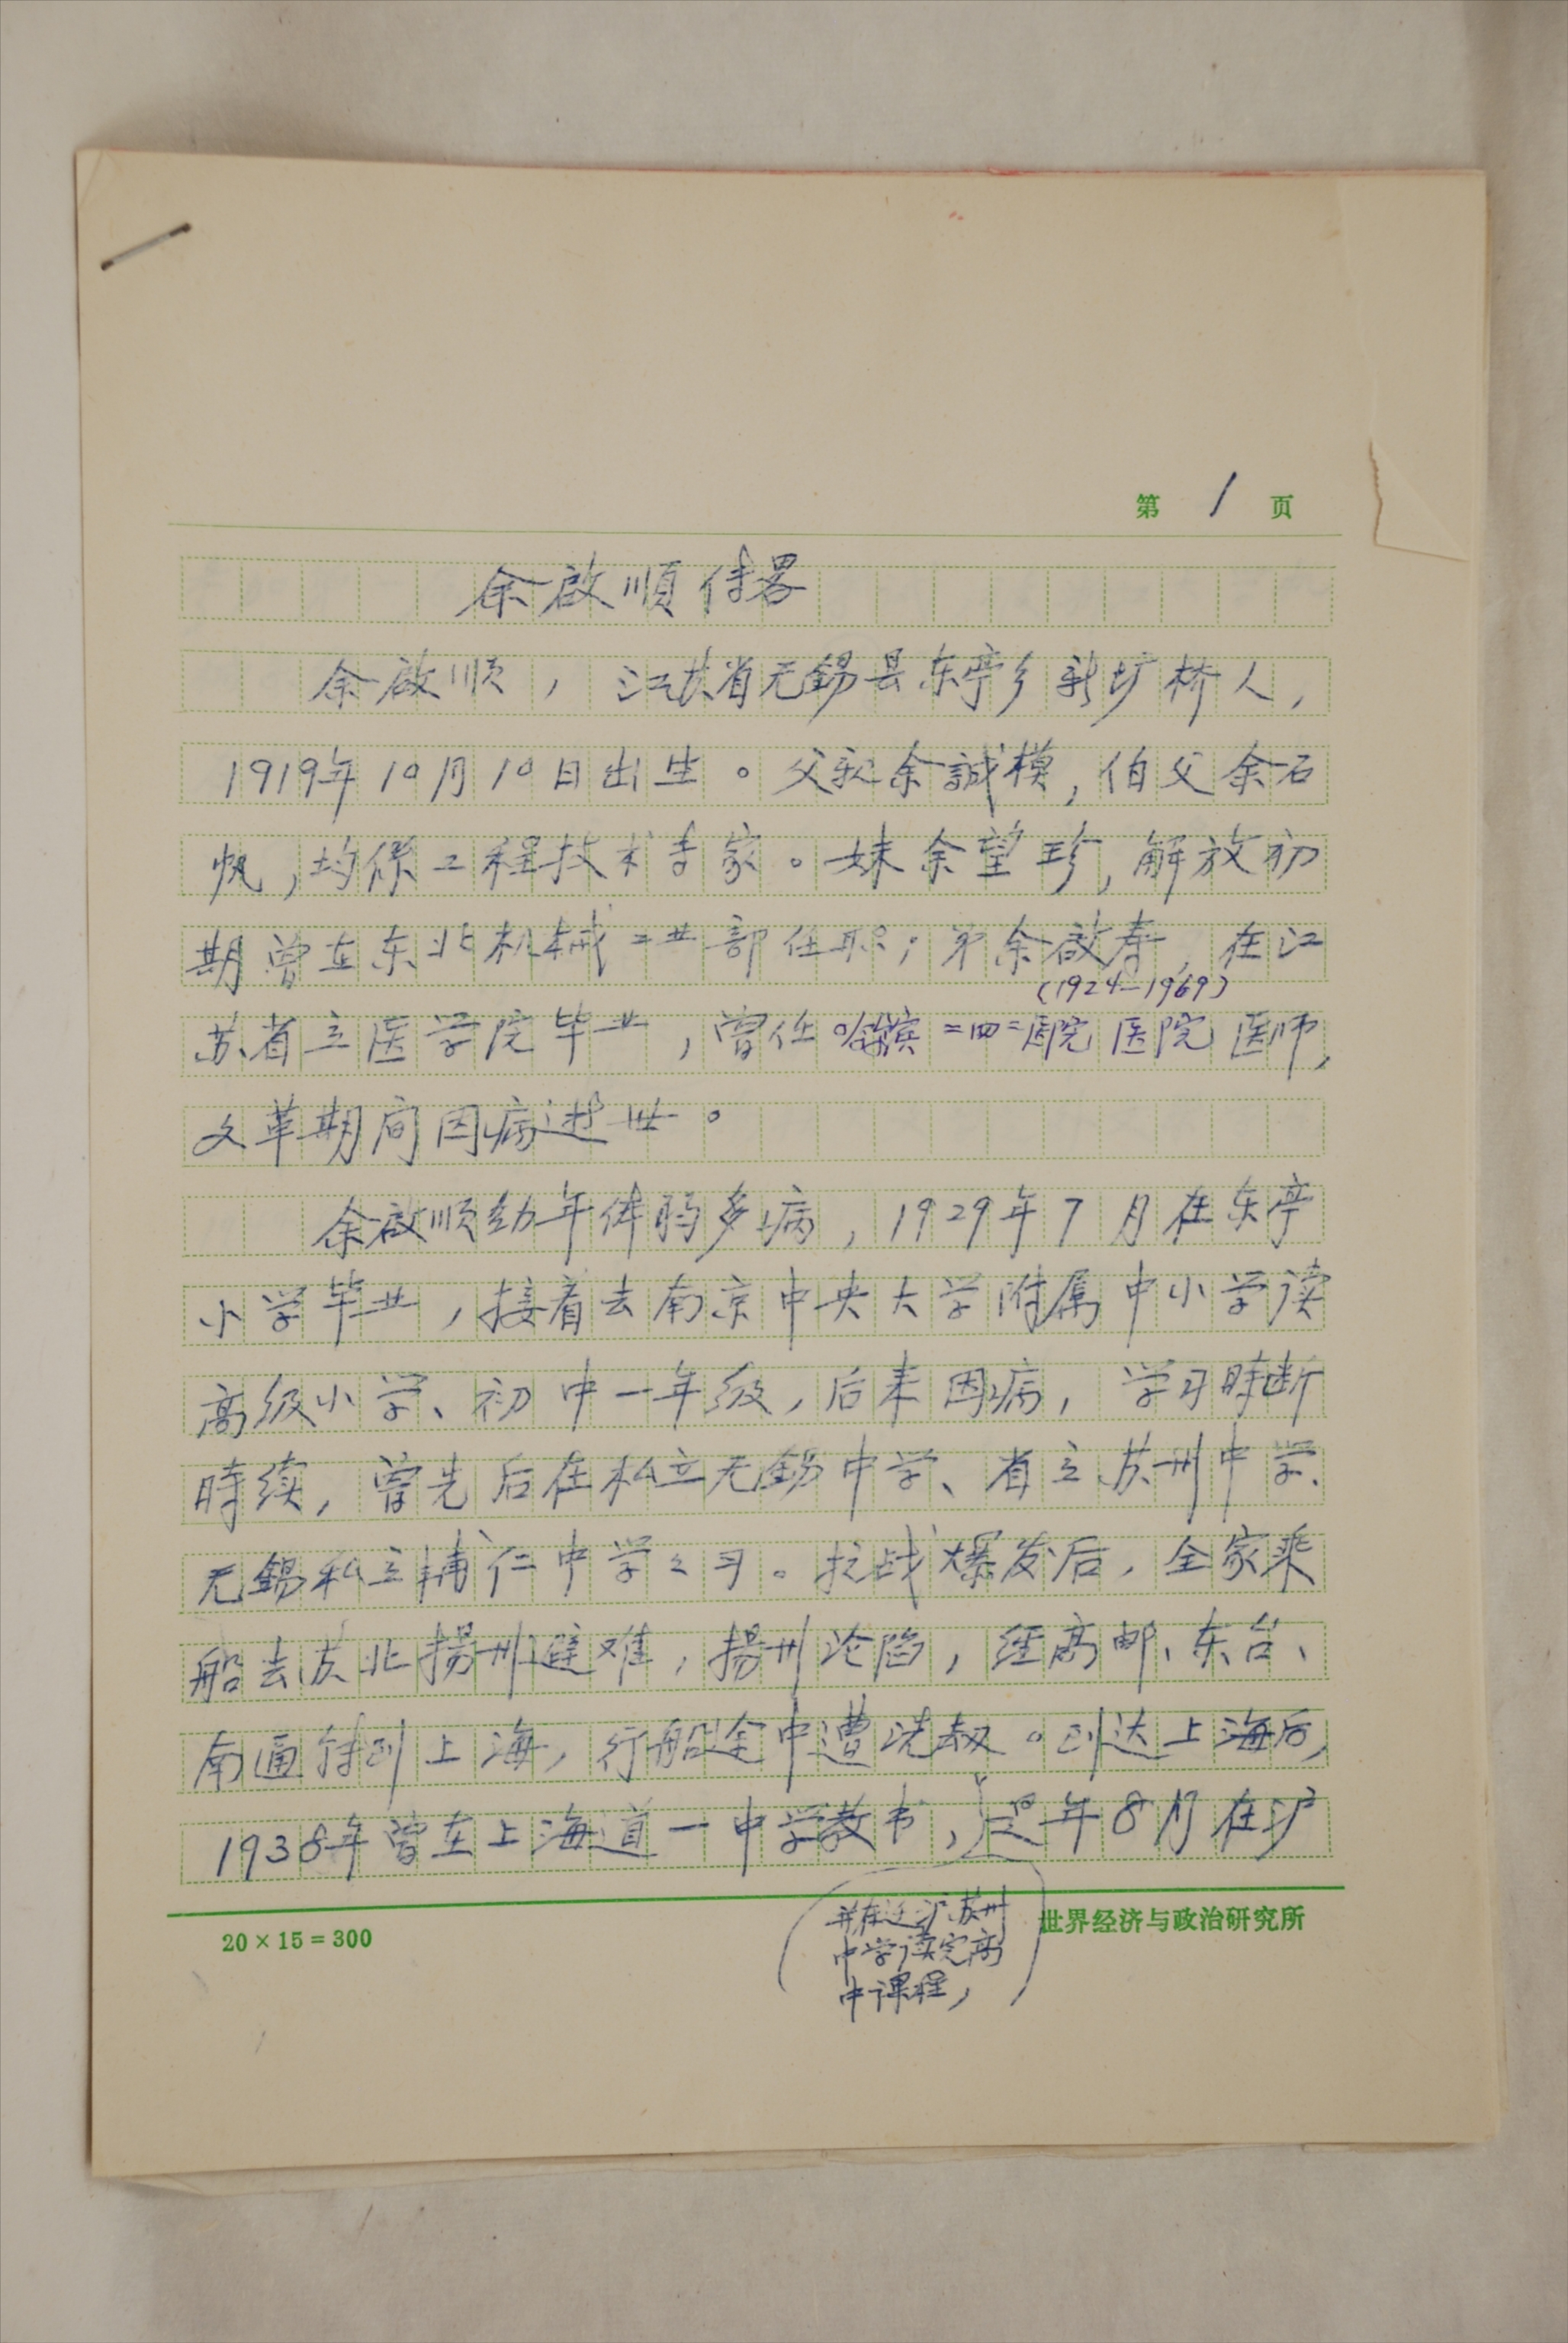 第 1 页
余啟順传畧
余啟顺，江苏省无錫县东亭乡新圹桥人，
1919年10月10日出生。父親余誠模，伯父余石
帆，均係工程技术专家。妹余望珍，解放初
期曾在东北机械工业部任职；弟余啟寿，在江
(1924—1969)
苏省立医学院毕业，曾任哈滨二四二医院医院医师，
文革期间因病逝世。
余啟顺幼年体弱多病，1929年7月在东亭
小学毕业，接着去南京中央大学附属中小学读
高级小学、初中一年级，后来因病，学习時断
時续，曾先后在私立无錫中学、省立苏州中学、
无錫私立輔仁中学学习。抗战爆发后，全家乘
船去苏北揚州避难，揚州沦陷，经高邮、东台、
南通转到上海，行船途中遭洗劫。到达上海后，
1938年曾在上海道一中学教书，是年8月在沪
并在迁沪苏州
中学读完高
中课程，
20×15=300
世界经济与政治研究所